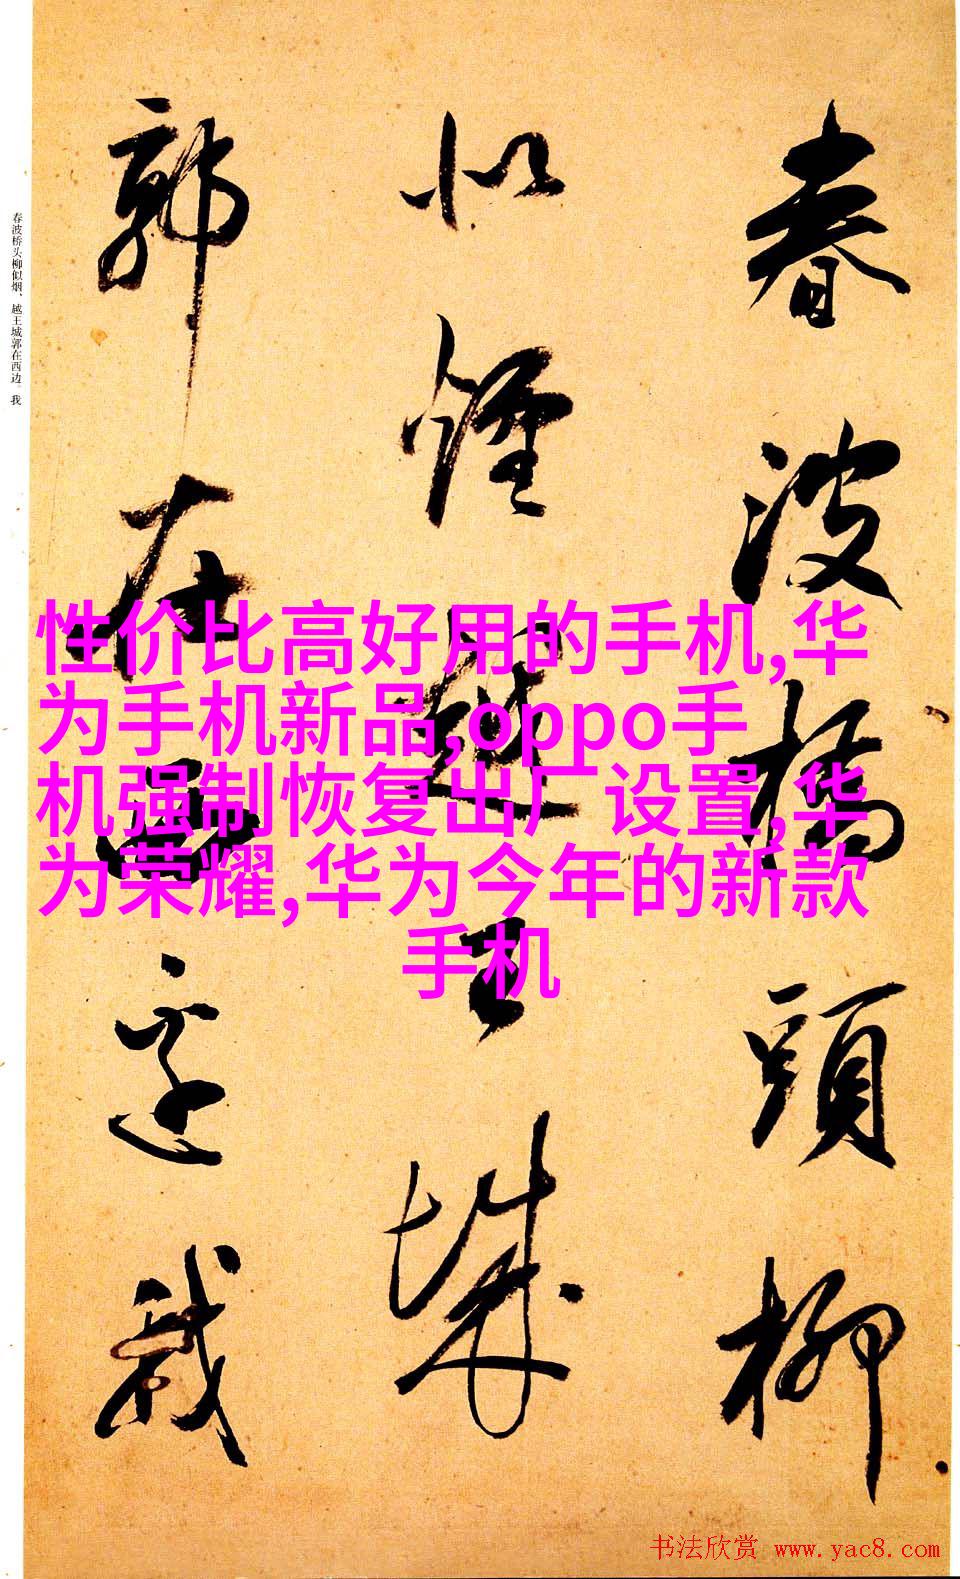 春波橋頭柳
似煙越王城
郭在西邊我
春波桥头柳似烟、越王城郭在西边。我
性价比高好用的手机,华
为手机新品,oppo手
机强制恢复出厂设置,华
为荣耀,华为今年的新款
手机
书法欣赏 www.yac8.com